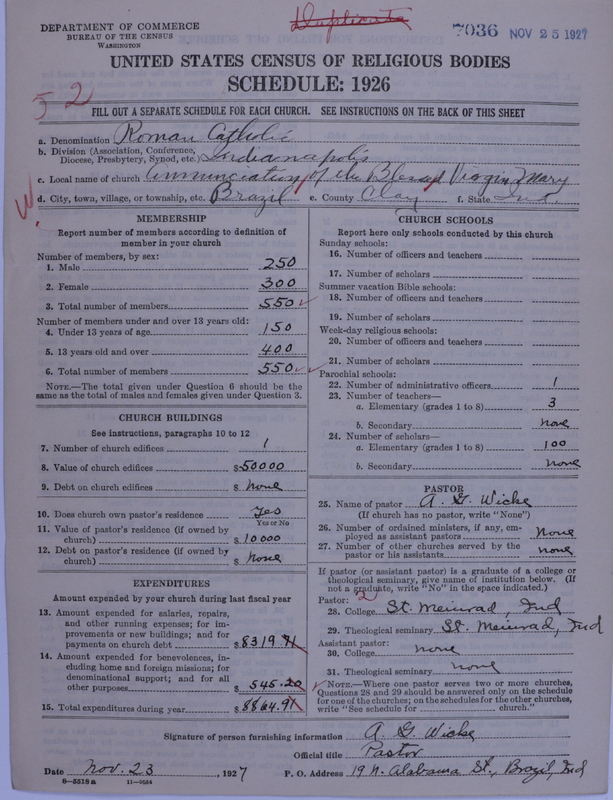 Duplicate
DEPARTMENT OF COMMERCE
BUREAU OF THE CENSUS
WASHINGTON
7036 NOV 25 1927
UNITED STATES CENSUS OF RELIGIOUS BODIES
SCHEDULE: 1926
52
FILL OUT A SEPARATE SCHEDULE FOR EACH CHURCH. SEE INSTRUCTIONS ON THE BACK OF THIS SHEET
a. Denomination Roman Catholic
b. Division (Association, Conference,
Diocese, Presbytery, Synod, etc.) Indianapolis
c. Local name of church Annunciation of the Blessed Virgin Mary
d. City, town, village, or township, etc. Brazil e. County Clay f. State Ind.
MEMBERSHIP
Report number of members according to definition of
member in your church
Number of members, by sex:
1. Male 250
2. Female 300
3. Total number of members 550
Number of members under and over 13 years old:
4. Under 13 years of age 150
5. 13 years old and over 400
6. Total number of members 550
NOTE.—The total given under Question 6 should be the
same as the total of males and females given under Question 3.
CHURCH BUILDINGS
See instructions, paragraphs 10 to 12
7. Number of church edifices 1
8. Value of church edifices $50000
9. Debt on church edifices $ None
10. Does church own pastor's residence Yes
Yes or No
11. Value of pastor's residence (if owned by
church) $10000
12. Debt on pastor's residence (if owned by
church) $ None
EXPENDITURES
Amount expended by your church during last fiscal year
13. Amount expended for salaries, repairs,
and other running expenses; for im-
provements or new buildings; and for
payments on church debt $8319.71
14. Amount expended for benevolences, in-
cluding home and foreign missions; for
denominational support; and for all
other purposes $ 545.20
15. Total expenditures during year $8864.91
CHURCH SCHOOLS
Report here only schools conducted by this church
Sunday schools:
16. Number of officers and teachers
17. Number of scholars
Summer vacation Bible schools:
18. Number of officers and teachers
19. Number of scholars
Week-day religious schools:
20. Number of officers and teachers
21. Number of scholars
Parochial schools:
22. Number of administrative officers 1
23. Number of teachers—
a. Elementary (grades 1 to 8) 3
b. Secondary None
24. Number of scholars—
a. Elementary (grades 1 to 8) 100
b. Secondary None
PASTOR
25. Name of pastor A. G. Wicke
(If church has no pastor, write "None")
26. Number of ordained ministers, if any, em-
ployed as assistant pastors None
27. Number of other churches served by the
pastor or his assistants None
If pastor (or assistant pastor) is a graduate of a college or
theological seminary, give name of institution below. (If
not a graduate, write "No" in the space indicated.)
Pastor: 2
28. College St. Meinrad, Ind
29. Theological seminary St. Meinrad, Ind
Assistant pastor:
30. College none
31. Theological seminary none
NOTE.—Where one pastor serves two or more churches,
Questions 28 and 29 should be answered only on the schedule
for one of the churches; on the schedules for the other churches,
write "See schedule for church."
Signature of person furnishing information A. G. Wicke
Official title Pastor
Date Nov. 23, 1927 P. O. Address 19 N. Alabama St., Brazil, Ind
8-5518a 11-9554